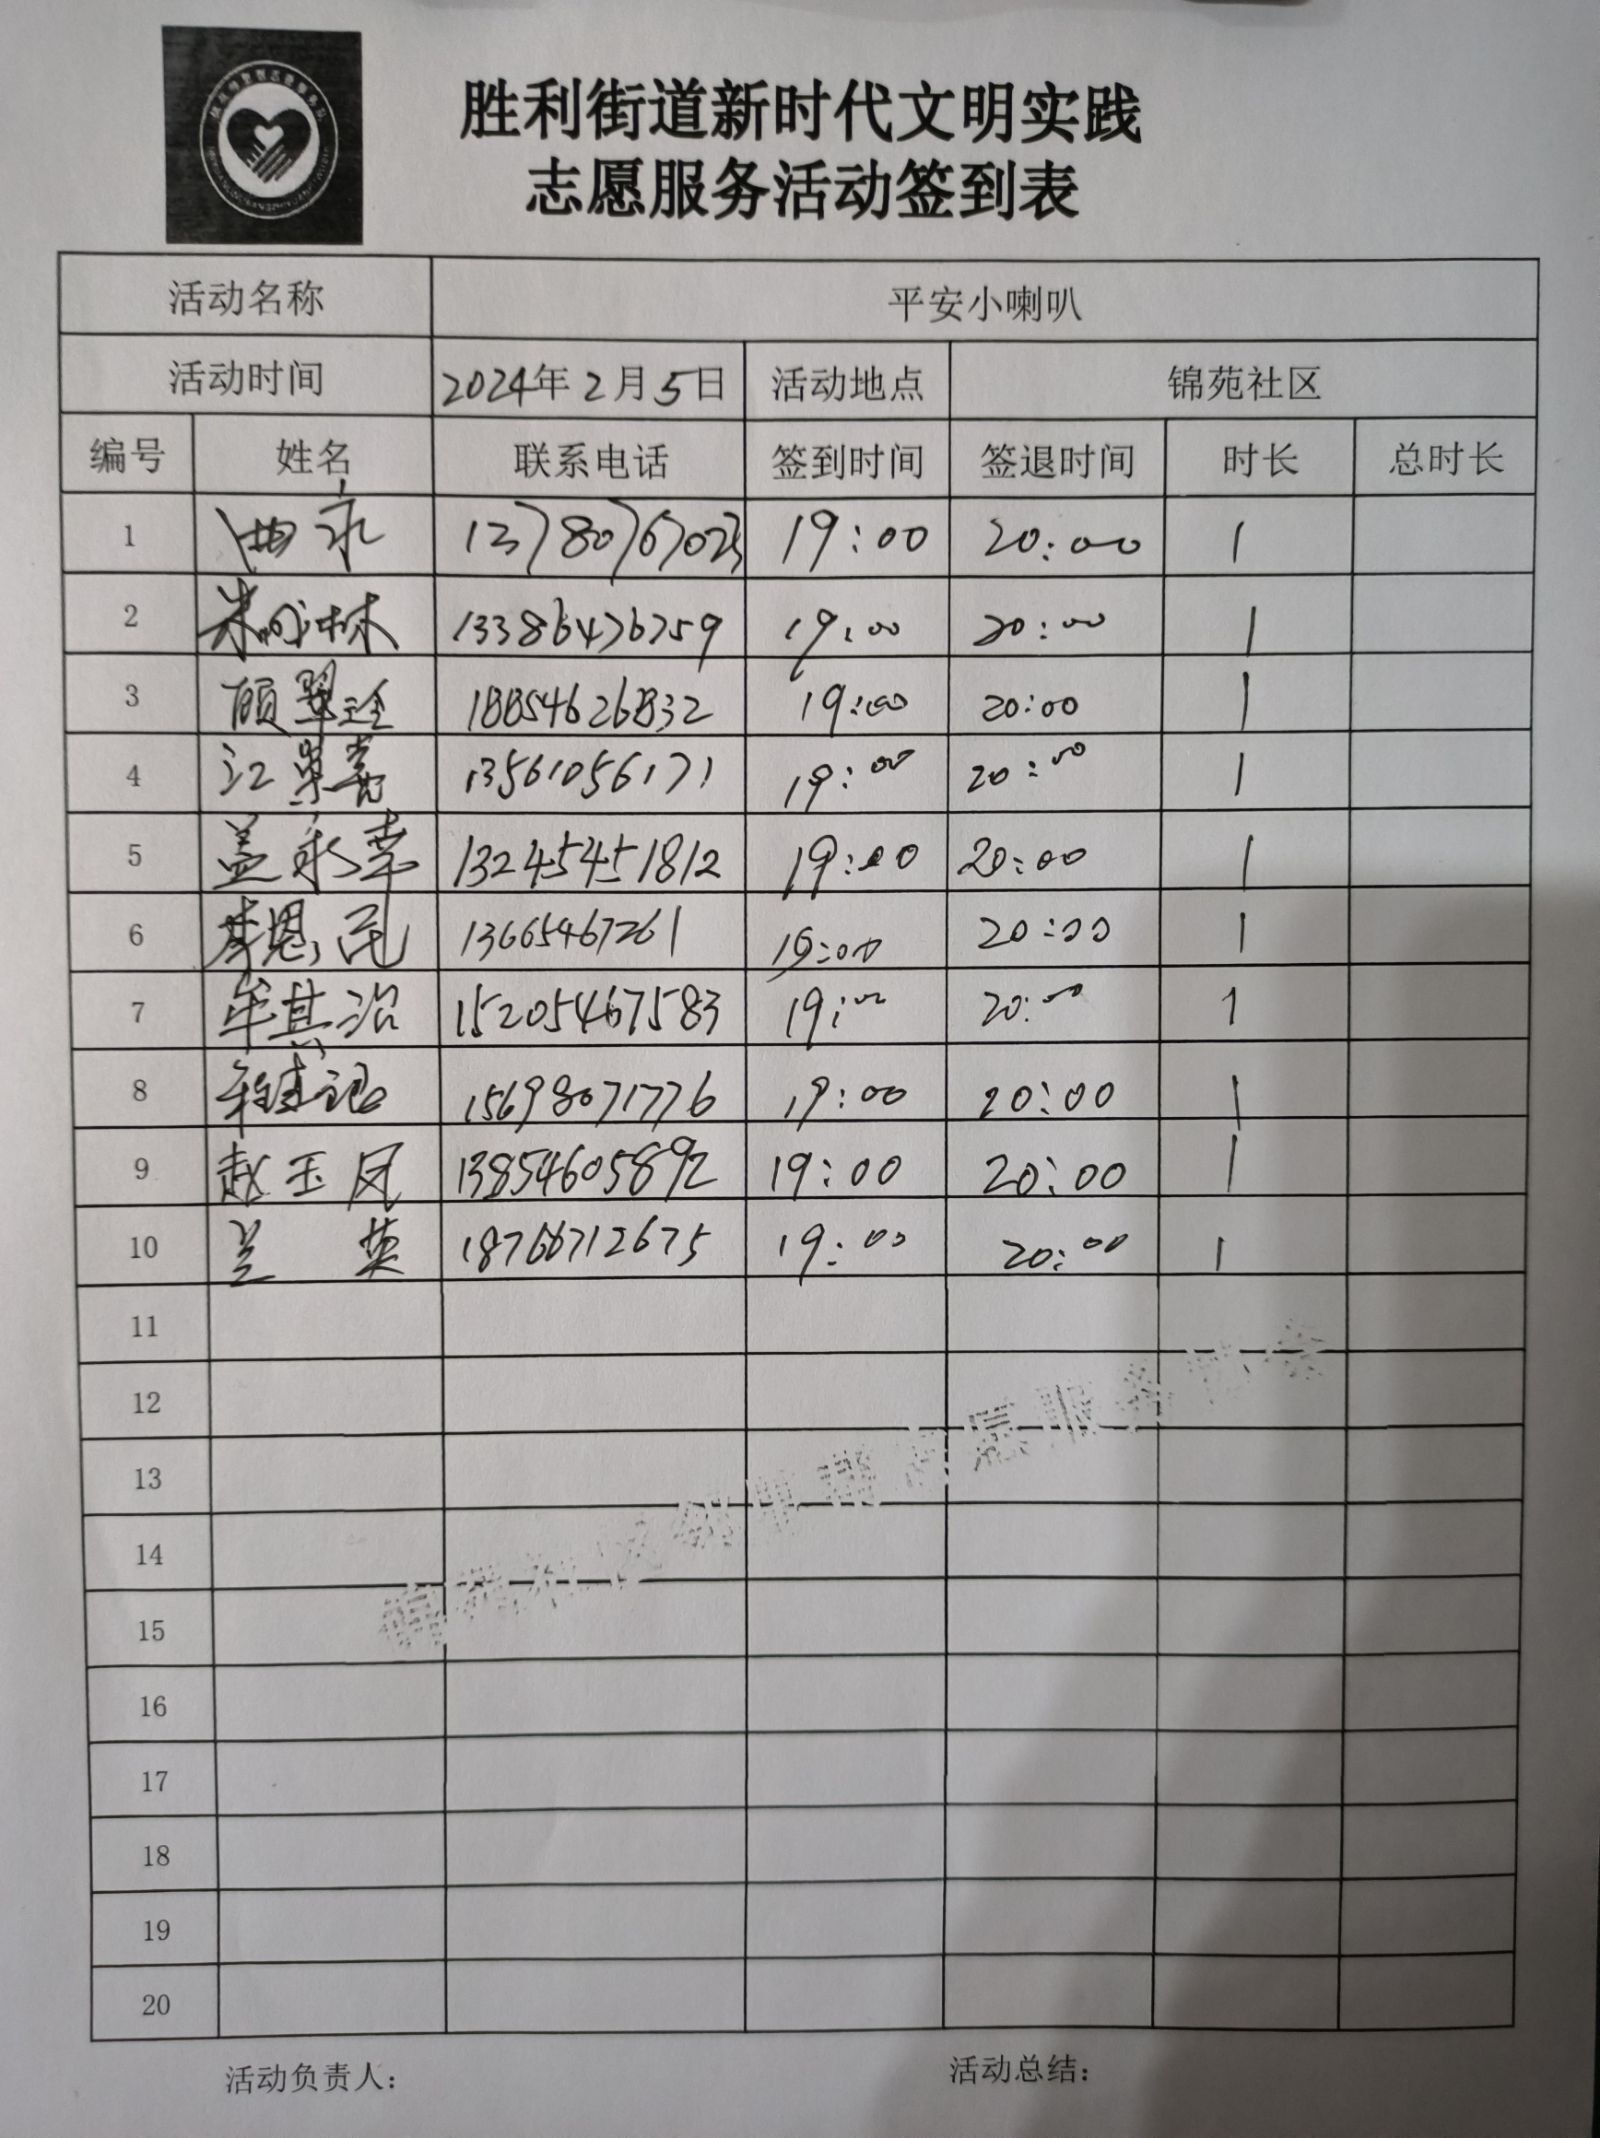 胜利街道新时代文明实践
志愿服务活动签到表
活动名称 平安小喇叭
活动时间 2024年2月5日 活动地点 锦苑社区
编号 姓名 联系电话 签到时间 签退时间 时长 总时长
1 13780767023 19:00 20:00 1
2 13386476759 19:00 20:00 1
3 顾翠 18854626832 19:00 20:00 1
4 江 13561056171 19:00 20:00 1
5 盖永幸 13245451812 19:00 20:00 1
6 李恩民 13665467261 19:00 20:00 1
7 牟其治 15205467583 19:00 20:00 1
8 15698071776 19:00 20:00 1
9 赵玉凤 13854605892 19:00 20:00 1
10 兰英 18766712675 19:00 20:00 1
11
12
13
14
15
16
17
18
19
20
活动负责人: 活动总结: